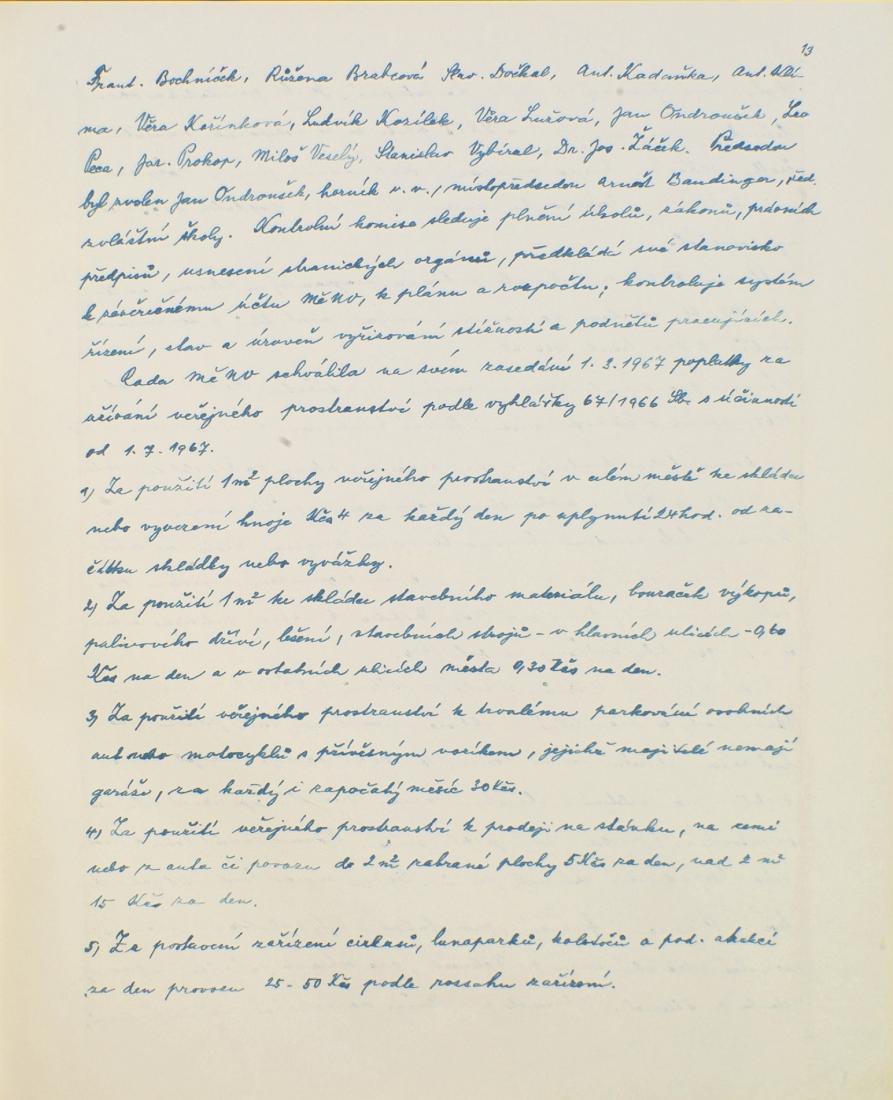 13
Frant. Bochníček, Růžena Brabcová Stan. Dočkal, Ant. Kadaňka, Ant. Kli-
ma, Věra Kořínková, Ludvík Kozílek, Věra Lužová, Jan Ondroušek, Leo
Peca, Jar. Prokop, Miloš Veselý, Stanislav Vybíral, Dr. Jos. Žáček. Předsedou
byl zvolen Jan Ondroušek, horník v. v., místopředsedou Arnošt Baudinger, řed.
zvláštní školy. Kontrolní komise sleduje plnění úkolů, zákonů, právních
předpisů, usnesení stranických orgánů, předkládá své stanovisko
k závěrečnému účtu MěNV, k plánu a rozpočtu; kontroluje systém
řízení, stav a úroveň vyřizování stížností a podnětů pracujících.
Rada MěNV schválila na svém zasedání 1. 3. 1967 poplatky za
užívání veřejného prostranství podle vyhlášky 67/1966 Sb. s účinností
od 1. 7. 1967.
1) Za použití 1 m² plochy veřejného prostranství v celém městě ke skládce
nebo vyvezení hnoje Kčs 4 za každý den po uplynutí 24 hod. od za-
čátku skládky nebo vyvážky.
2) Za použití 1 m² ke skládce stavebního materiálu, bouraček výkopů,
palivového dříví, lešení, stavebních strojů - v hlavních ulicích - 0,60
Kčs na den a v ostatních ulicích města 0,30 Kčs na den.
3) Za použití veřejného prostranství k trvalému parkování osobních
aut nebo motocyklů s přívěsným vozíkem, jejichž majitelé nemají
garáže, za každý i započatý měsíc 30 Kčs.
4) Za použití veřejného prostranství k prodeji na stánku, na zemi
nebo z auta či povozu do 2 m² zabrané plochy 5 Kčs za den, nad 2 m²
15 Kčs za den.
5) Za postavení zařízení cirkusů, lunaparků, kolotočů a pod. atrakcí
za den provozu 25 - 50 Kčs podle rozsahu zařízení.